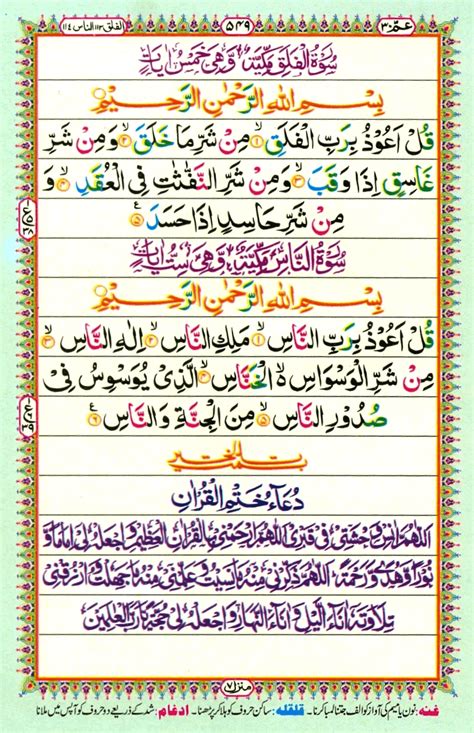 عمّ ٣٠ ٥٤٩ الفلق ١١٣ الناس ١١٤
سُوْرَةُ الْفَلَقِ مَكِّيَّةٌ وَّهِىَ خَمْسُ اٰيَاتٍ
بِسْمِ اللهِ الرَّحْمٰنِ الرَّحِيْمِ
قُلْ اَعُوْذُ بِرَبِّ الْفَلَقِ ۙ﴿۱﴾ مِنْ شَرِّ مَا خَلَقَ ۙ﴿۲﴾ وَمِنْ شَرِّ
غَاسِقٍ اِذَا وَقَبَ ۙ﴿۳﴾ وَمِنْ شَرِّ النَّفّٰثٰتِ فِى الْعُقَدِ ۙ﴿۴﴾ وَ
مِنْ شَرِّ حَاسِدٍ اِذَا حَسَدَ ﴿۵﴾
سُوْرَةُ النَّاسِ مَكِّيَّةٌ وَّهِىَ سِتُّ اٰيَاتٍ
بِسْمِ اللهِ الرَّحْمٰنِ الرَّحِيْمِ
قُلْ اَعُوْذُ بِرَبِّ النَّاسِ ۙ﴿۱﴾ مَلِكِ النَّاسِ ۙ﴿۲﴾ اِلٰهِ النَّاسِ ۙ﴿۳﴾
مِنْ شَرِّ الْوَسْوَاسِ ۵ۙ الْخَنَّاسِ ۙ﴿۴﴾ الَّذِىْ يُوَسْوِسُ فِىْ
صُدُوْرِ النَّاسِ ۙ﴿۵﴾ مِنَ الْجِنَّةِ وَالنَّاسِ ﴿۶﴾
تمت بالخير
دُعَآءُ خَتْمِ الْقُرْاٰنِ
اَللّٰهُمَّ اٰنِسْ وَحْشَتِىْ فِىْ قَبْرِىْ اَللّٰهُمَّ ارْحَمْنِىْ بِالْقُرْاٰنِ الْعَظِيْمِ وَاجْعَلْهُ لِىْ اِمَامًا وَّ
نُوْرًا وَّهُدًى وَّرَحْمَةً اَللّٰهُمَّ ذَكِّرْنِىْ مِنْهُ مَا نَسِيْتُ وَعَلِّمْنِىْ مِنْهُ مَا جَهِلْتُ وَارْزُقْنِىْ
تِلَاوَتَهٗ اٰنَآءَ الَّيْلِ وَاٰنَآءَ النَّهَارِ وَاجْعَلْهُ لِىْ حُجَّةً يَّا رَبَّ الْعٰلَمِيْنَ
منزل ٧
غنه: نون یا میم کی آواز کو الف جتنا لمبا کرنا۔ قلقله: ساکن حروف کو ہلا کر پڑھنا۔ ادغام: شد کے ذریعے دو حروف کو آپس میں ملانا